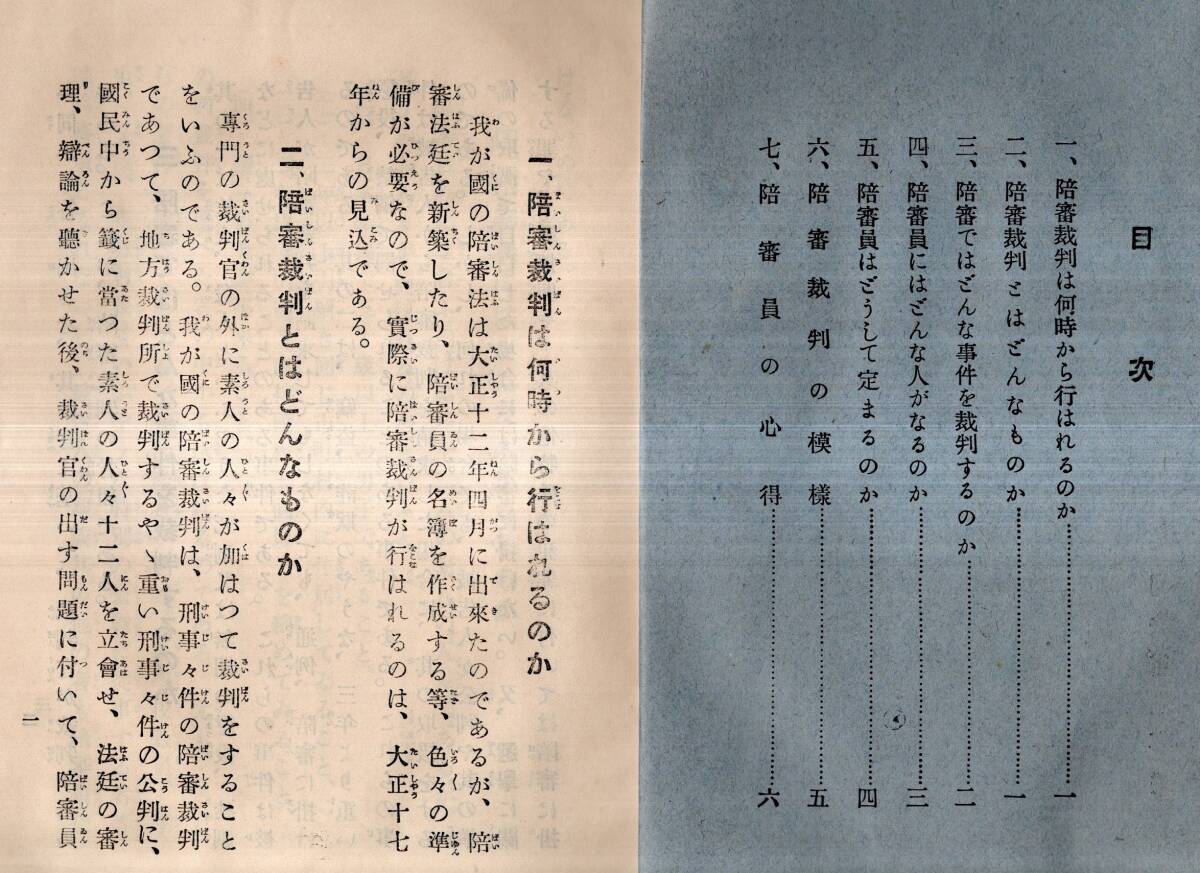 目次
一、陪審裁判は何時から行はれるのか…………一
二、陪審裁判とはどんなものか…………一
三、陪審ではどんな事件を裁判するのか…………二
四、陪審員にはどんな人がなるのか…………三
五、陪審員はどうして定まるのか…………四
六、陪審裁判の模樣…………五
七、陪審員の心得…………六
一、陪審裁判は何時から行はれるのか
我が國の陪審法は大正十二年四月に出來たのであるが、陪
審法廷を新築したり、陪審員の名簿を作成する等、色々の準
備が必要なので、實際に陪審裁判が行はれるのは、大正十七
年からの見込である。
二、陪審裁判とはどんなものか
專門の裁判官の外に素人の人々が加はつて裁判をすること
をいふのである。我が國の陪審裁判は、刑事々件の陪審裁判
であつて、地方裁判所で裁判するやゝ重い刑事々件の公判に、
國民中から籤に當つた素人の人々十二人を立會せ、法廷の審
理、辯論を聽かせた後、裁判官の出す問題に付いて、陪審員
一